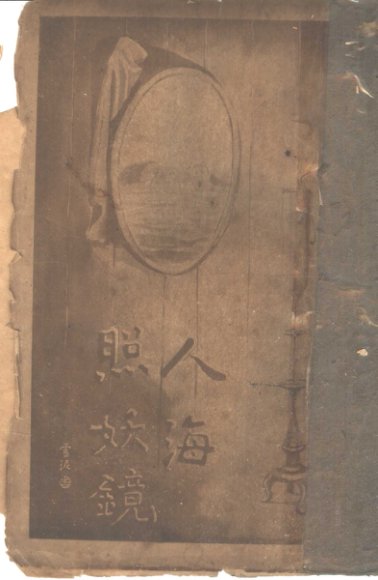 人海
照妖鏡